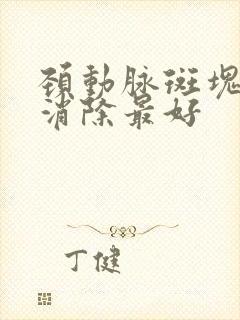 頚動脉斑塊
消除最好
丁健